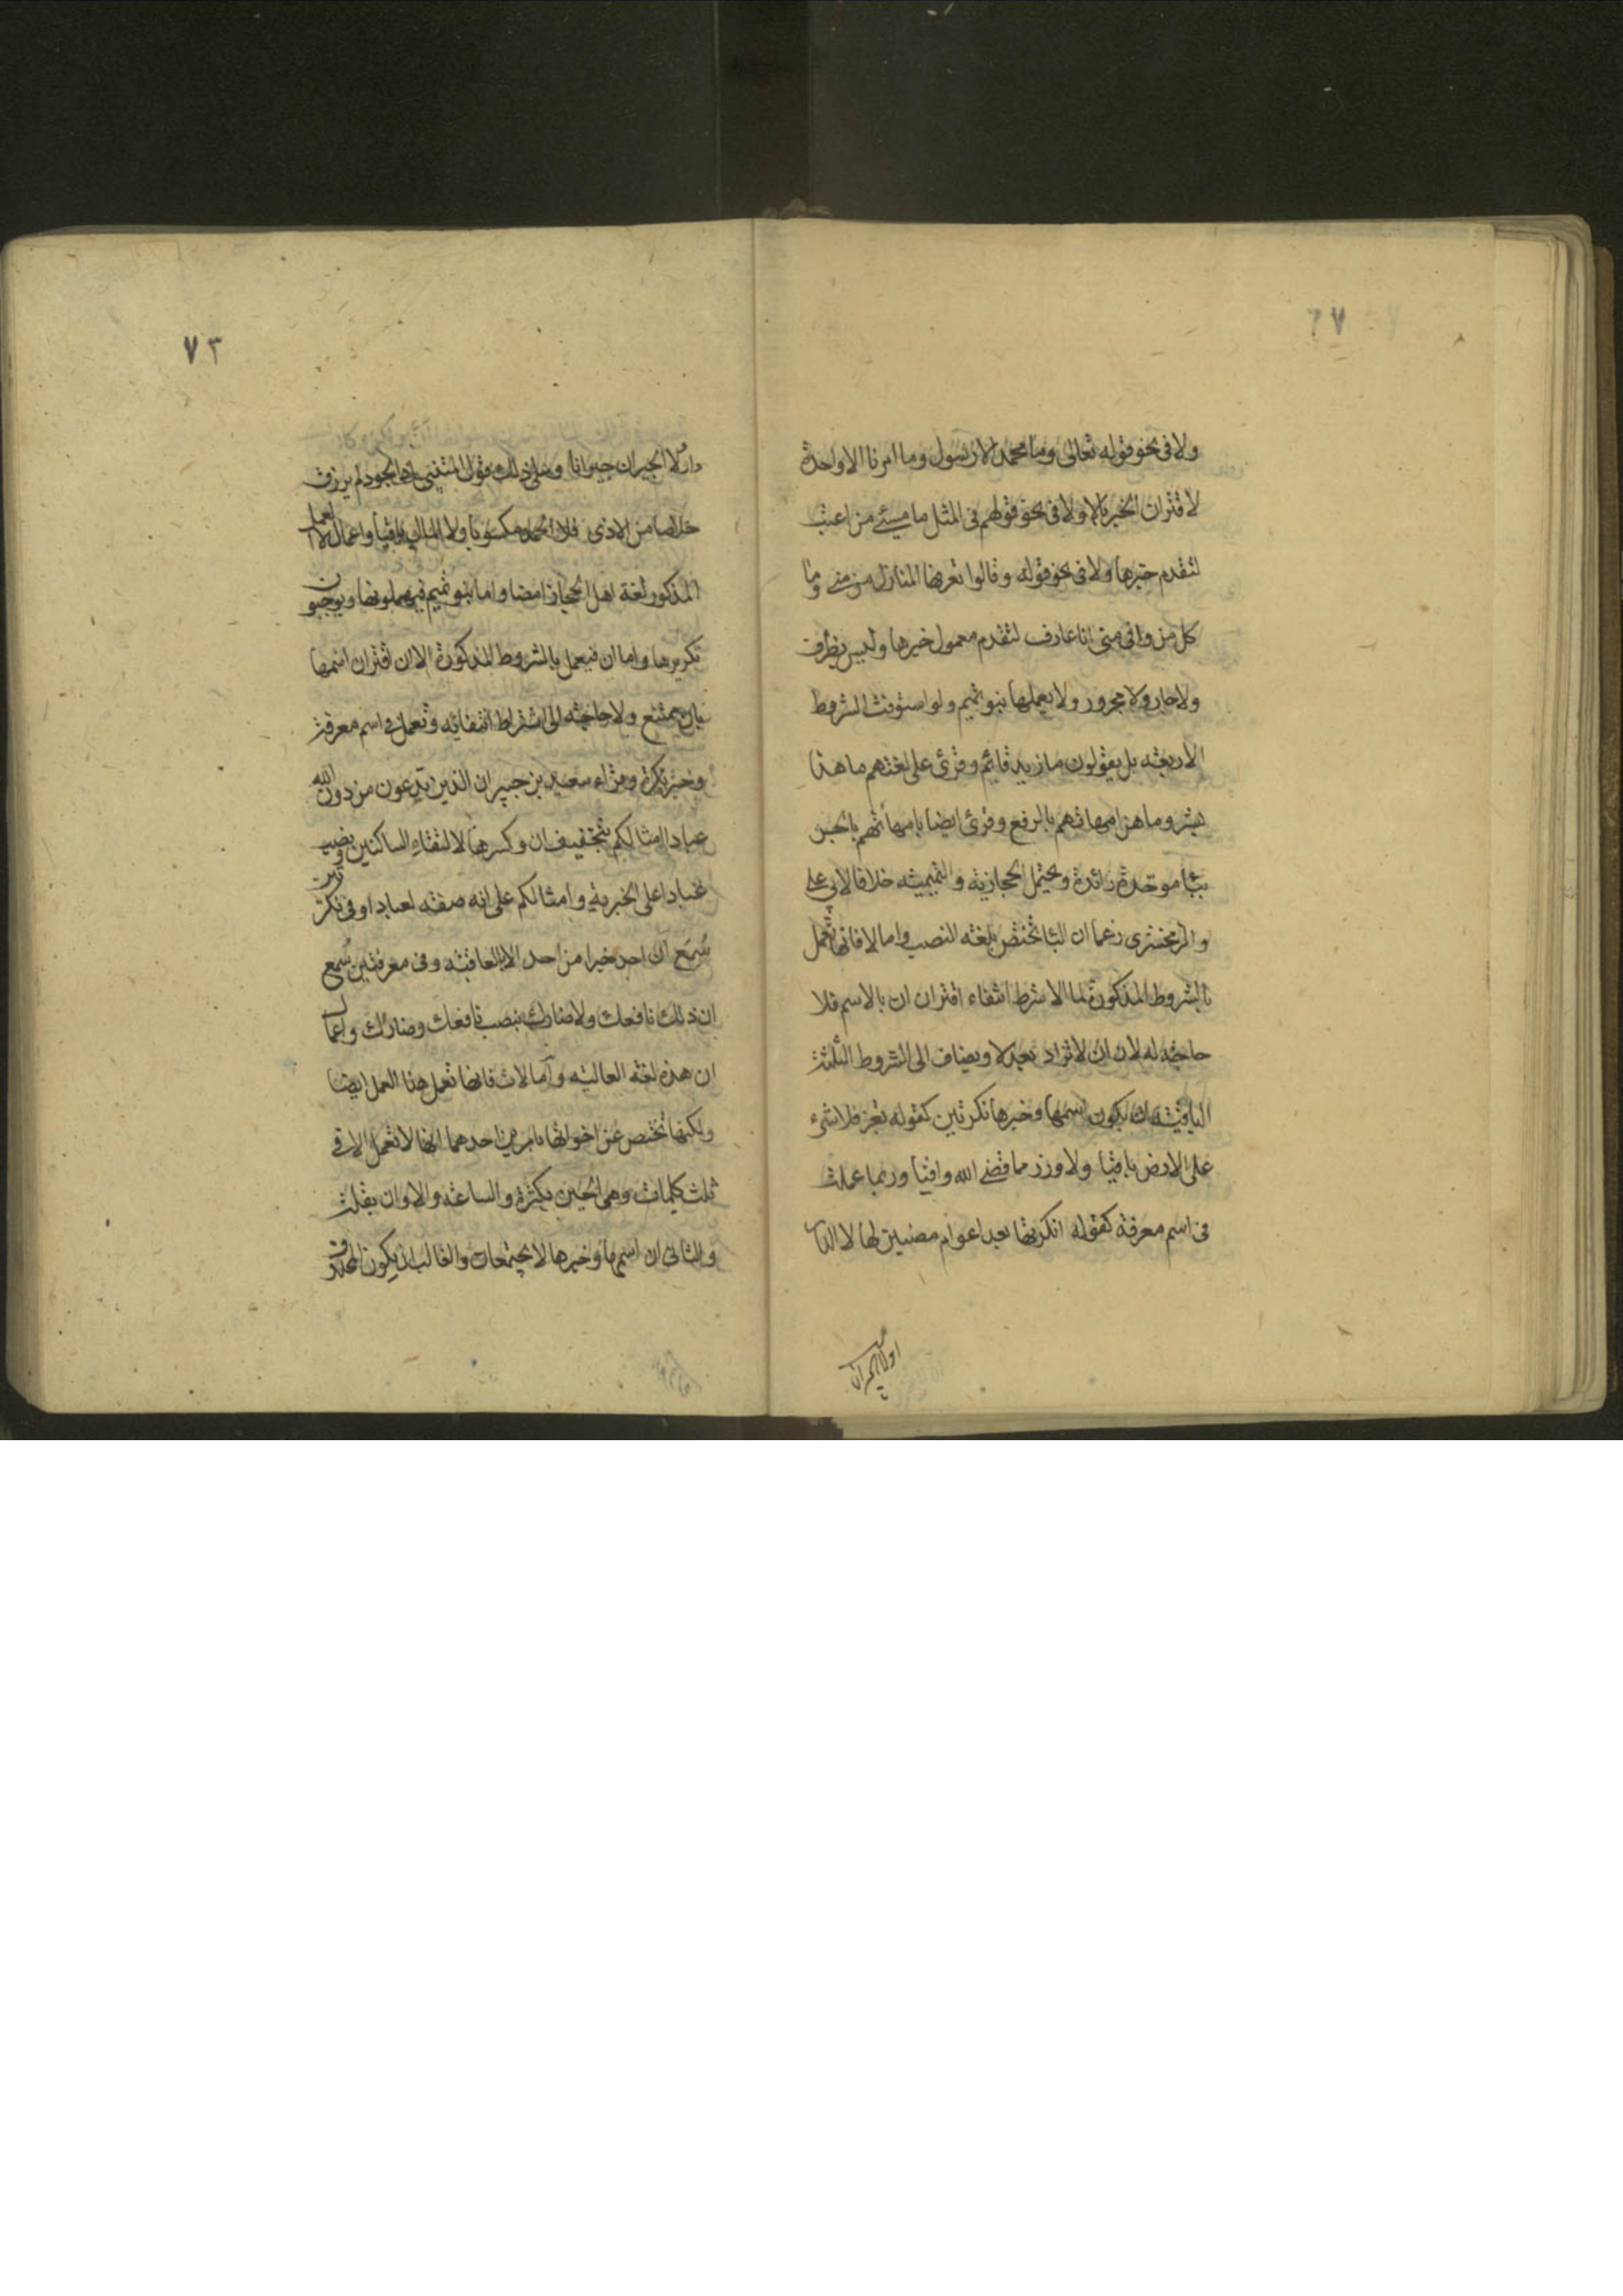 ٦٧
ولا فى نحو قوله تعالى وما محمد الا رسول وما امرنا الا واحدة
لاقتران الخبر بالا ولا فى نحو قولهم فى المثل ما مسئ من اعتب
لتقدم خبرها ولا فى نحو قوله وقالوا تعرفها المنازل من منى وما
كل من وافى منى انا عارف لتقدم معمول خبرها وليس بظرف
ولا جار ولا مجرور ولا يعملها بنو تميم ولو استوفت الشروط
الاربعة بل يقولون ما زيد قائم وقرئ على لغتهم ما هذا
بشر وما هن امهاتهم بالرفع وقرئ ايضا بامهاتهم بالجر
بباء موحدة زائدة ويحتمل الحجازية والتميمية خلافا لابى على
والزمخشرى زعما ان الباء تختص بلغة النصب واما لا فانها تعمل
بالشروط المذكورة لما الا شرط انتفاء اقتران ان بالاسم فلا
حاجة له لان ان لا تزاد بعد لا ويضاف الى الشروط الثلثة
الباقية ان يكون اسمها وخبرها نكرتين كقوله تعز فلا شىء
على الارض باقيا ولا وزر مما قضى الله واقيا وربما عملت
فى اسم معرفة كقوله انكرتها بعد اعوام مضين لها لا الدار
٧٣
دارا ولا الجيران جيرانا وعلى ذلك قول المتنبى اذا الجود لم يرزق
خلاصا من الاذى فلا الحمد مكسوبا ولا المال باقيا واعمال لا العمل
المذكور لغة اهل الحجاز ايضا واما بنو تميم فيهملونها ويوجبون
تكريرها واما ان فيعمل بالشروط المذكورة الا ان اقتران اسمها
بان ممتنع ولا حاجة الى اشتراط انتفائه وتعمل فى اسم معرفة
وخبر نكرة وقراء سعيد بن جبير ان الذين تدعون من دون الله
عبادا امثالكم بتخفيف ان وكسرها لالتقاء الساكنين ونصب
عبادا على الخبرية وامثالكم على انه صفة لعبادا وفى نكرتين
سمع ان احد خيرا من احد الا بالعافية وفى معرفتين سمع
ان ذلك نافعك ولا ضارك بنصب نافعك وضارك واعمال
ان هذه لغة العالية واما لات فانها تعمل هذا العمل ايضا
ولكنها تختص عن اخواتها بامرين احدهما انها لا تعمل الا فى
ثلث كلمات وهى الحين بكثرة والساعة والاوان بقلة
والثانى ان اسمها وخبرها لا يجتمعان والغالب ان يكون المحذوف